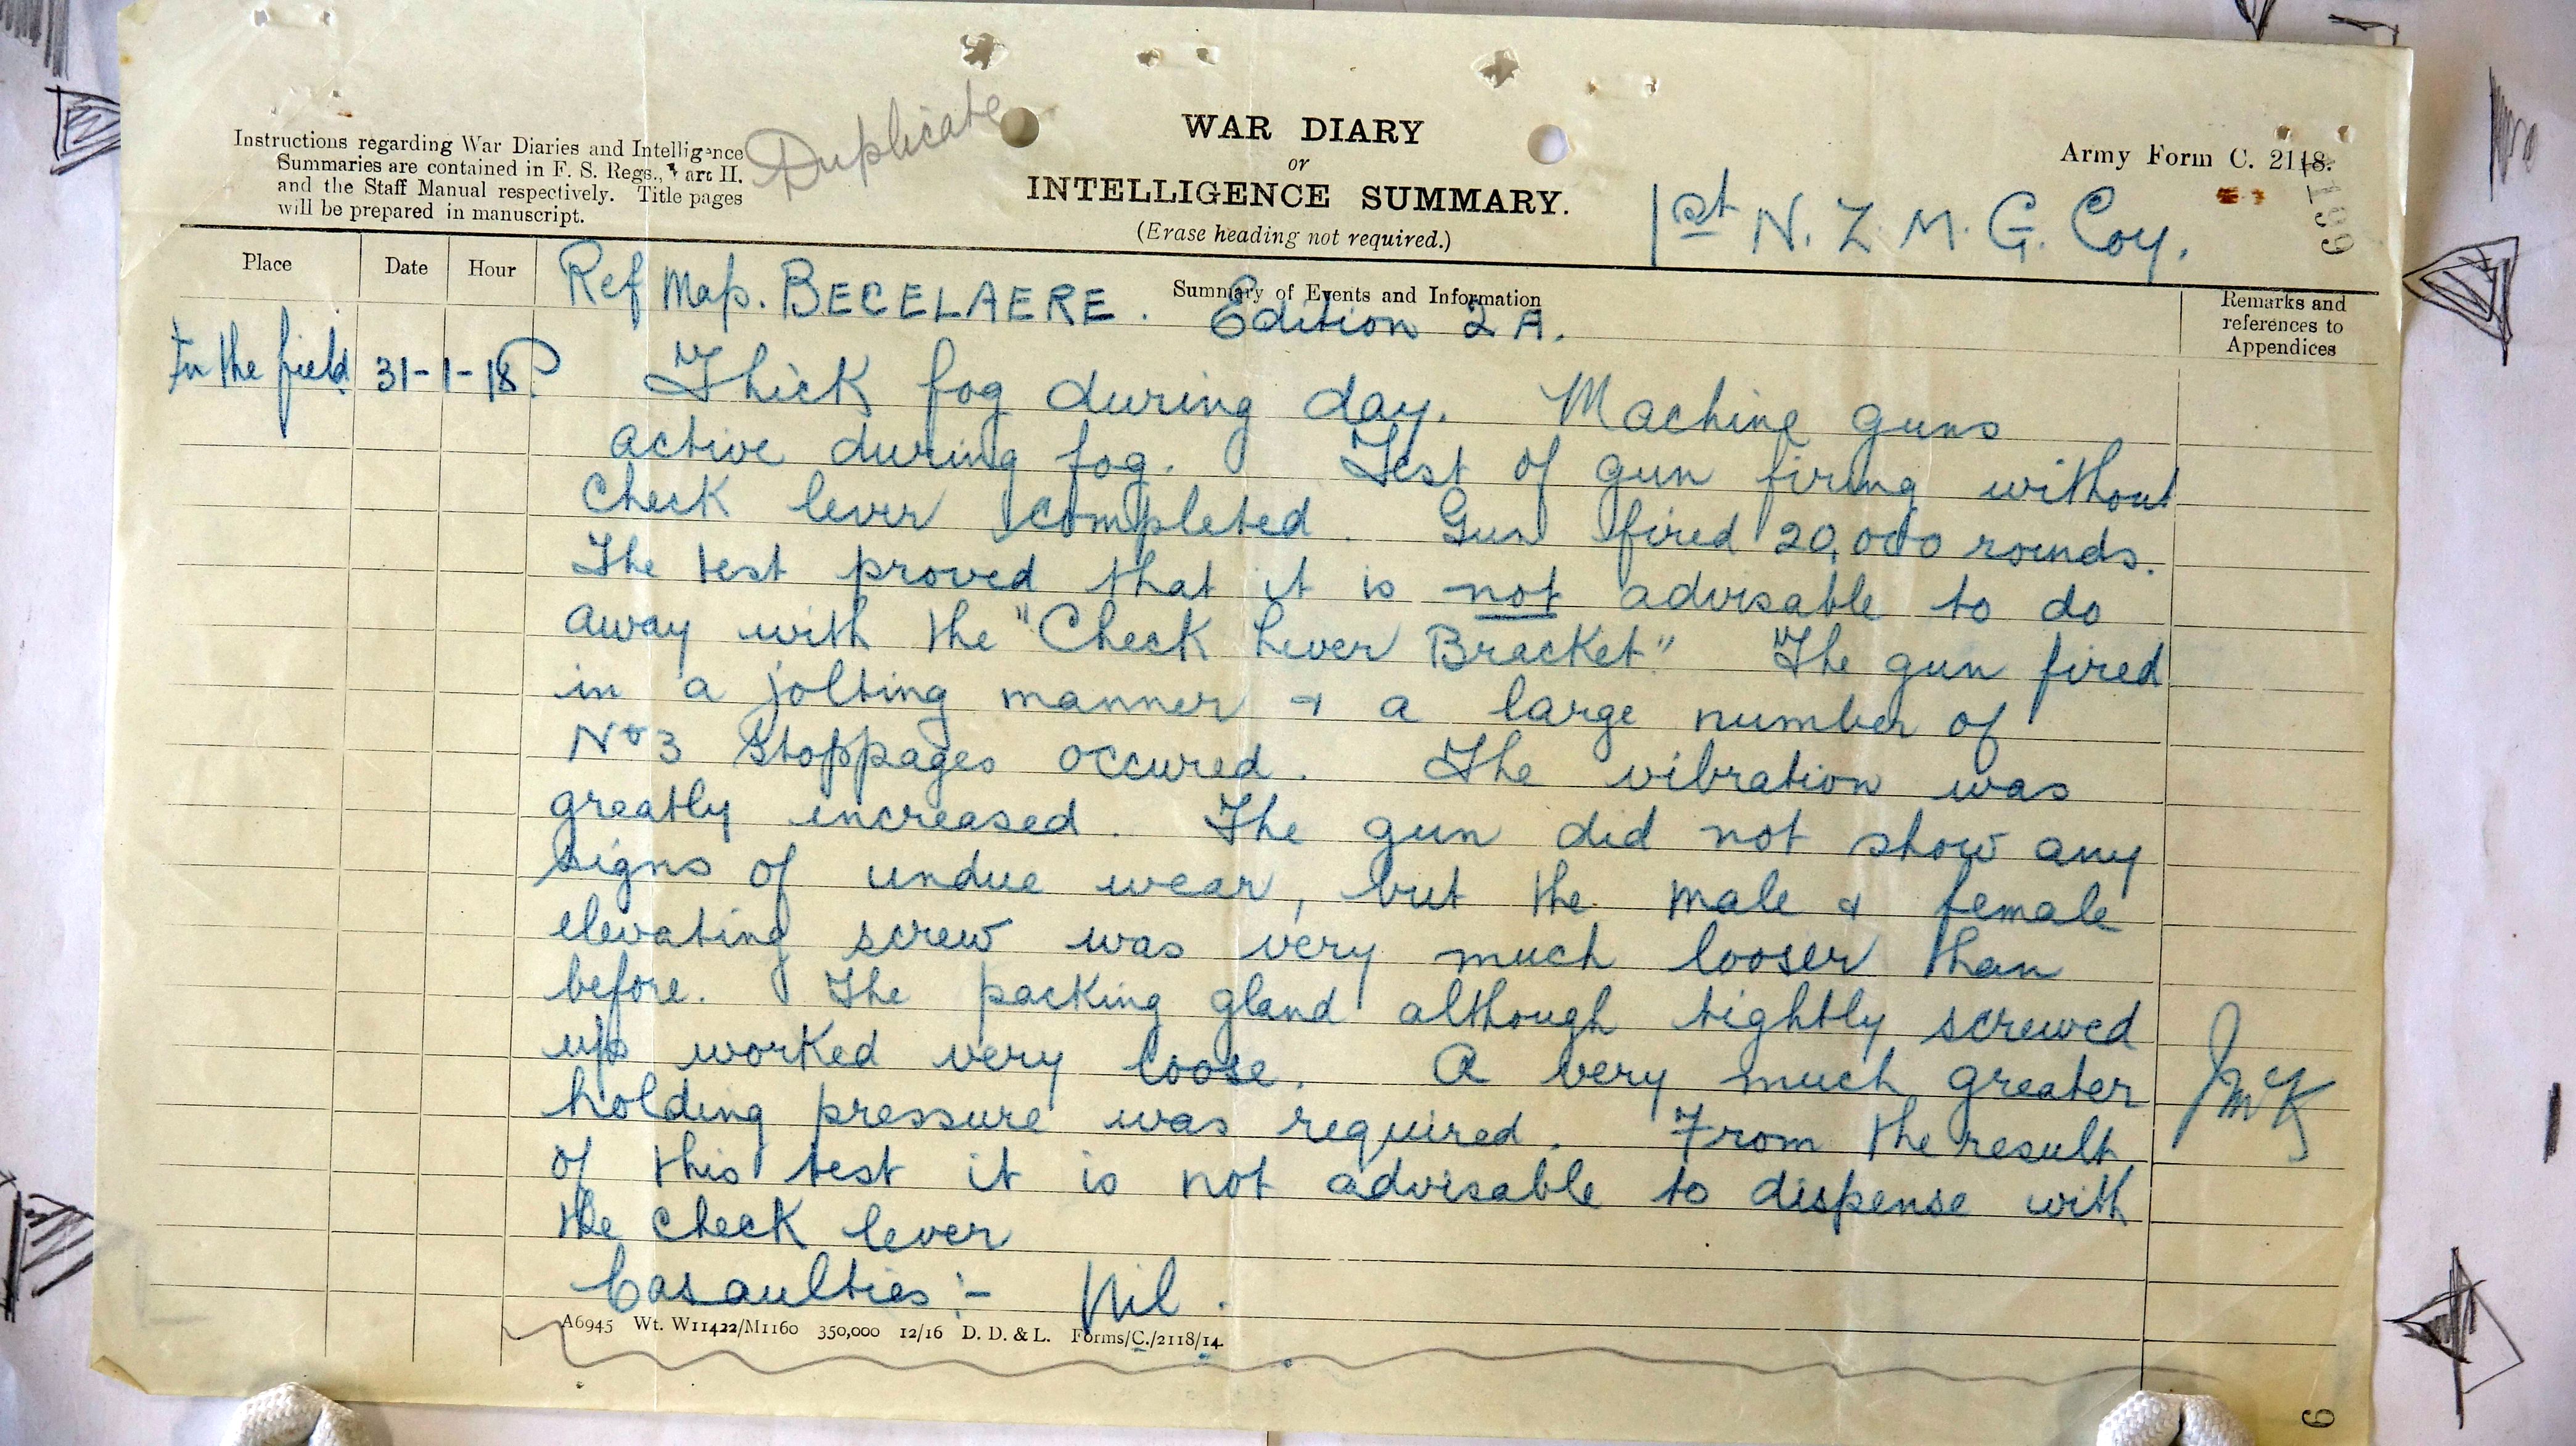 Instructions regarding War Diaries and Intelligence
Summaries are contained in F. S. Regs., Part II.
and the Staff Manual respectively. Title pages
will be prepared in manuscript.
Duplicate
WAR DIARY
or
INTELLIGENCE SUMMARY.
(Erase heading not required.)
Army Form C. 2118.
1st N. Z. M. G. Coy.
Place
Date
Hour
Ref Map. BECELAERE. Edition 2A.
Summary of Events and Information
Remarks and
references to
Appendices
In the field 31-1-18. Thick fog during day. Machine guns
active during fog. Test of gun firing without
check lever completed. Gun fired 20,000 rounds.
The test proved that it is not advisable to do
away with the "Check Lever Bracket." The gun fired
in a jolting manner & a large number of
No 3 stoppages occured. The vibration was
greatly increased. The gun did not show any
signs of undue wear, but the male & female
elevating screw was very much looser than
before. The packing gland although tightly screwed
up worked very loose. A very much greater
holding pressure was required. From the result
of this test it is not advisable to dispense with
the check lever
Casaulties :- Nil.
JMcK
A6945 Wt. W11422/M1160 350,000 12/16 D. D. & L. Forms/C./2118/14.
6